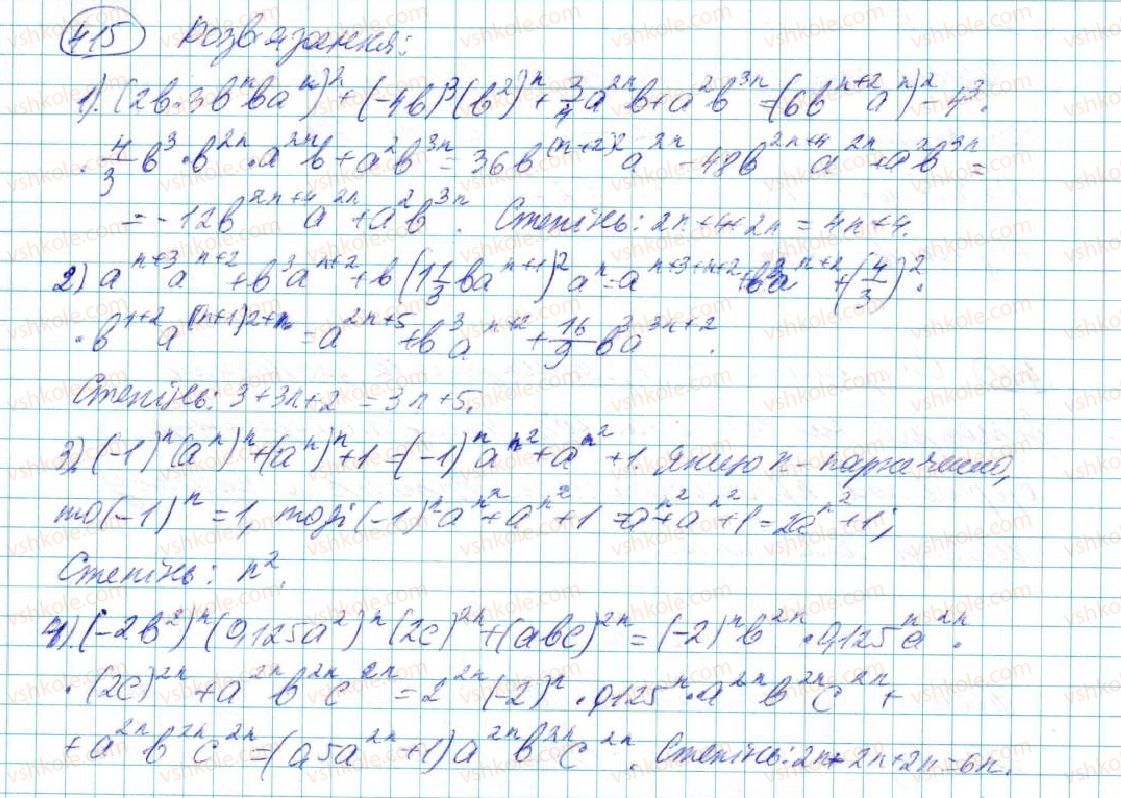 415 Розв'язання:
1). (2b·3bⁿbaⁿ)² + (-4b)³(b²)ⁿ + 3/4 a²ⁿb + a²b³ⁿ = (6bⁿ⁺²aⁿ)² - 4³·
· 4/3 b³·b²ⁿ·a²ⁿb + a²b³ⁿ = 36b⁽ⁿ⁺²⁾²a²ⁿ - 48b²ⁿ⁺⁴a²ⁿ + a²b³ⁿ =
= -12b²ⁿ⁺⁴a²ⁿ + a²b³ⁿ. Степінь: 2n+4+2n = 4n+4.
2) aⁿ⁺³aⁿ⁺² + b³aⁿ⁺² + b(1 1/3 baⁿ⁺¹)²aⁿ = aⁿ⁺³⁺ⁿ⁺² + b³aⁿ⁺² + (4/3)²·
·b¹⁺²a⁽ⁿ⁺¹⁾²⁺ⁿ = a²ⁿ⁺⁵ + b³aⁿ⁺² + 16/9 b³a³ⁿ⁺².
Степінь: 3+3n+2 = 3n+5.
3) (-1)ⁿ(aⁿ)ⁿ + (aⁿ)ⁿ + 1 = (-1)ⁿa^n² + a^n² + 1. Якщо n - парне число,
то (-1)ⁿ = 1, тоді (-1)ⁿ·a^n² + a^n² + 1 = a^n² + a^n² + 1 = 2a^n² + 1;
Степінь: n².
4). (-2b²)ⁿ(0,125a²)ⁿ(2c)²ⁿ + (abc)²ⁿ = (-2)ⁿb²ⁿ·0,125ⁿa²ⁿ·
·(2c)²ⁿ + a²ⁿb²ⁿc²ⁿ = 2²ⁿ(-2)ⁿ·0,125ⁿ·a²ⁿb²ⁿc²ⁿ +
+ a²ⁿb²ⁿc²ⁿ = (0,5a²ⁿ + 1)a²ⁿb²ⁿc²ⁿ. Степінь: 2n+2n+2n = 6n.